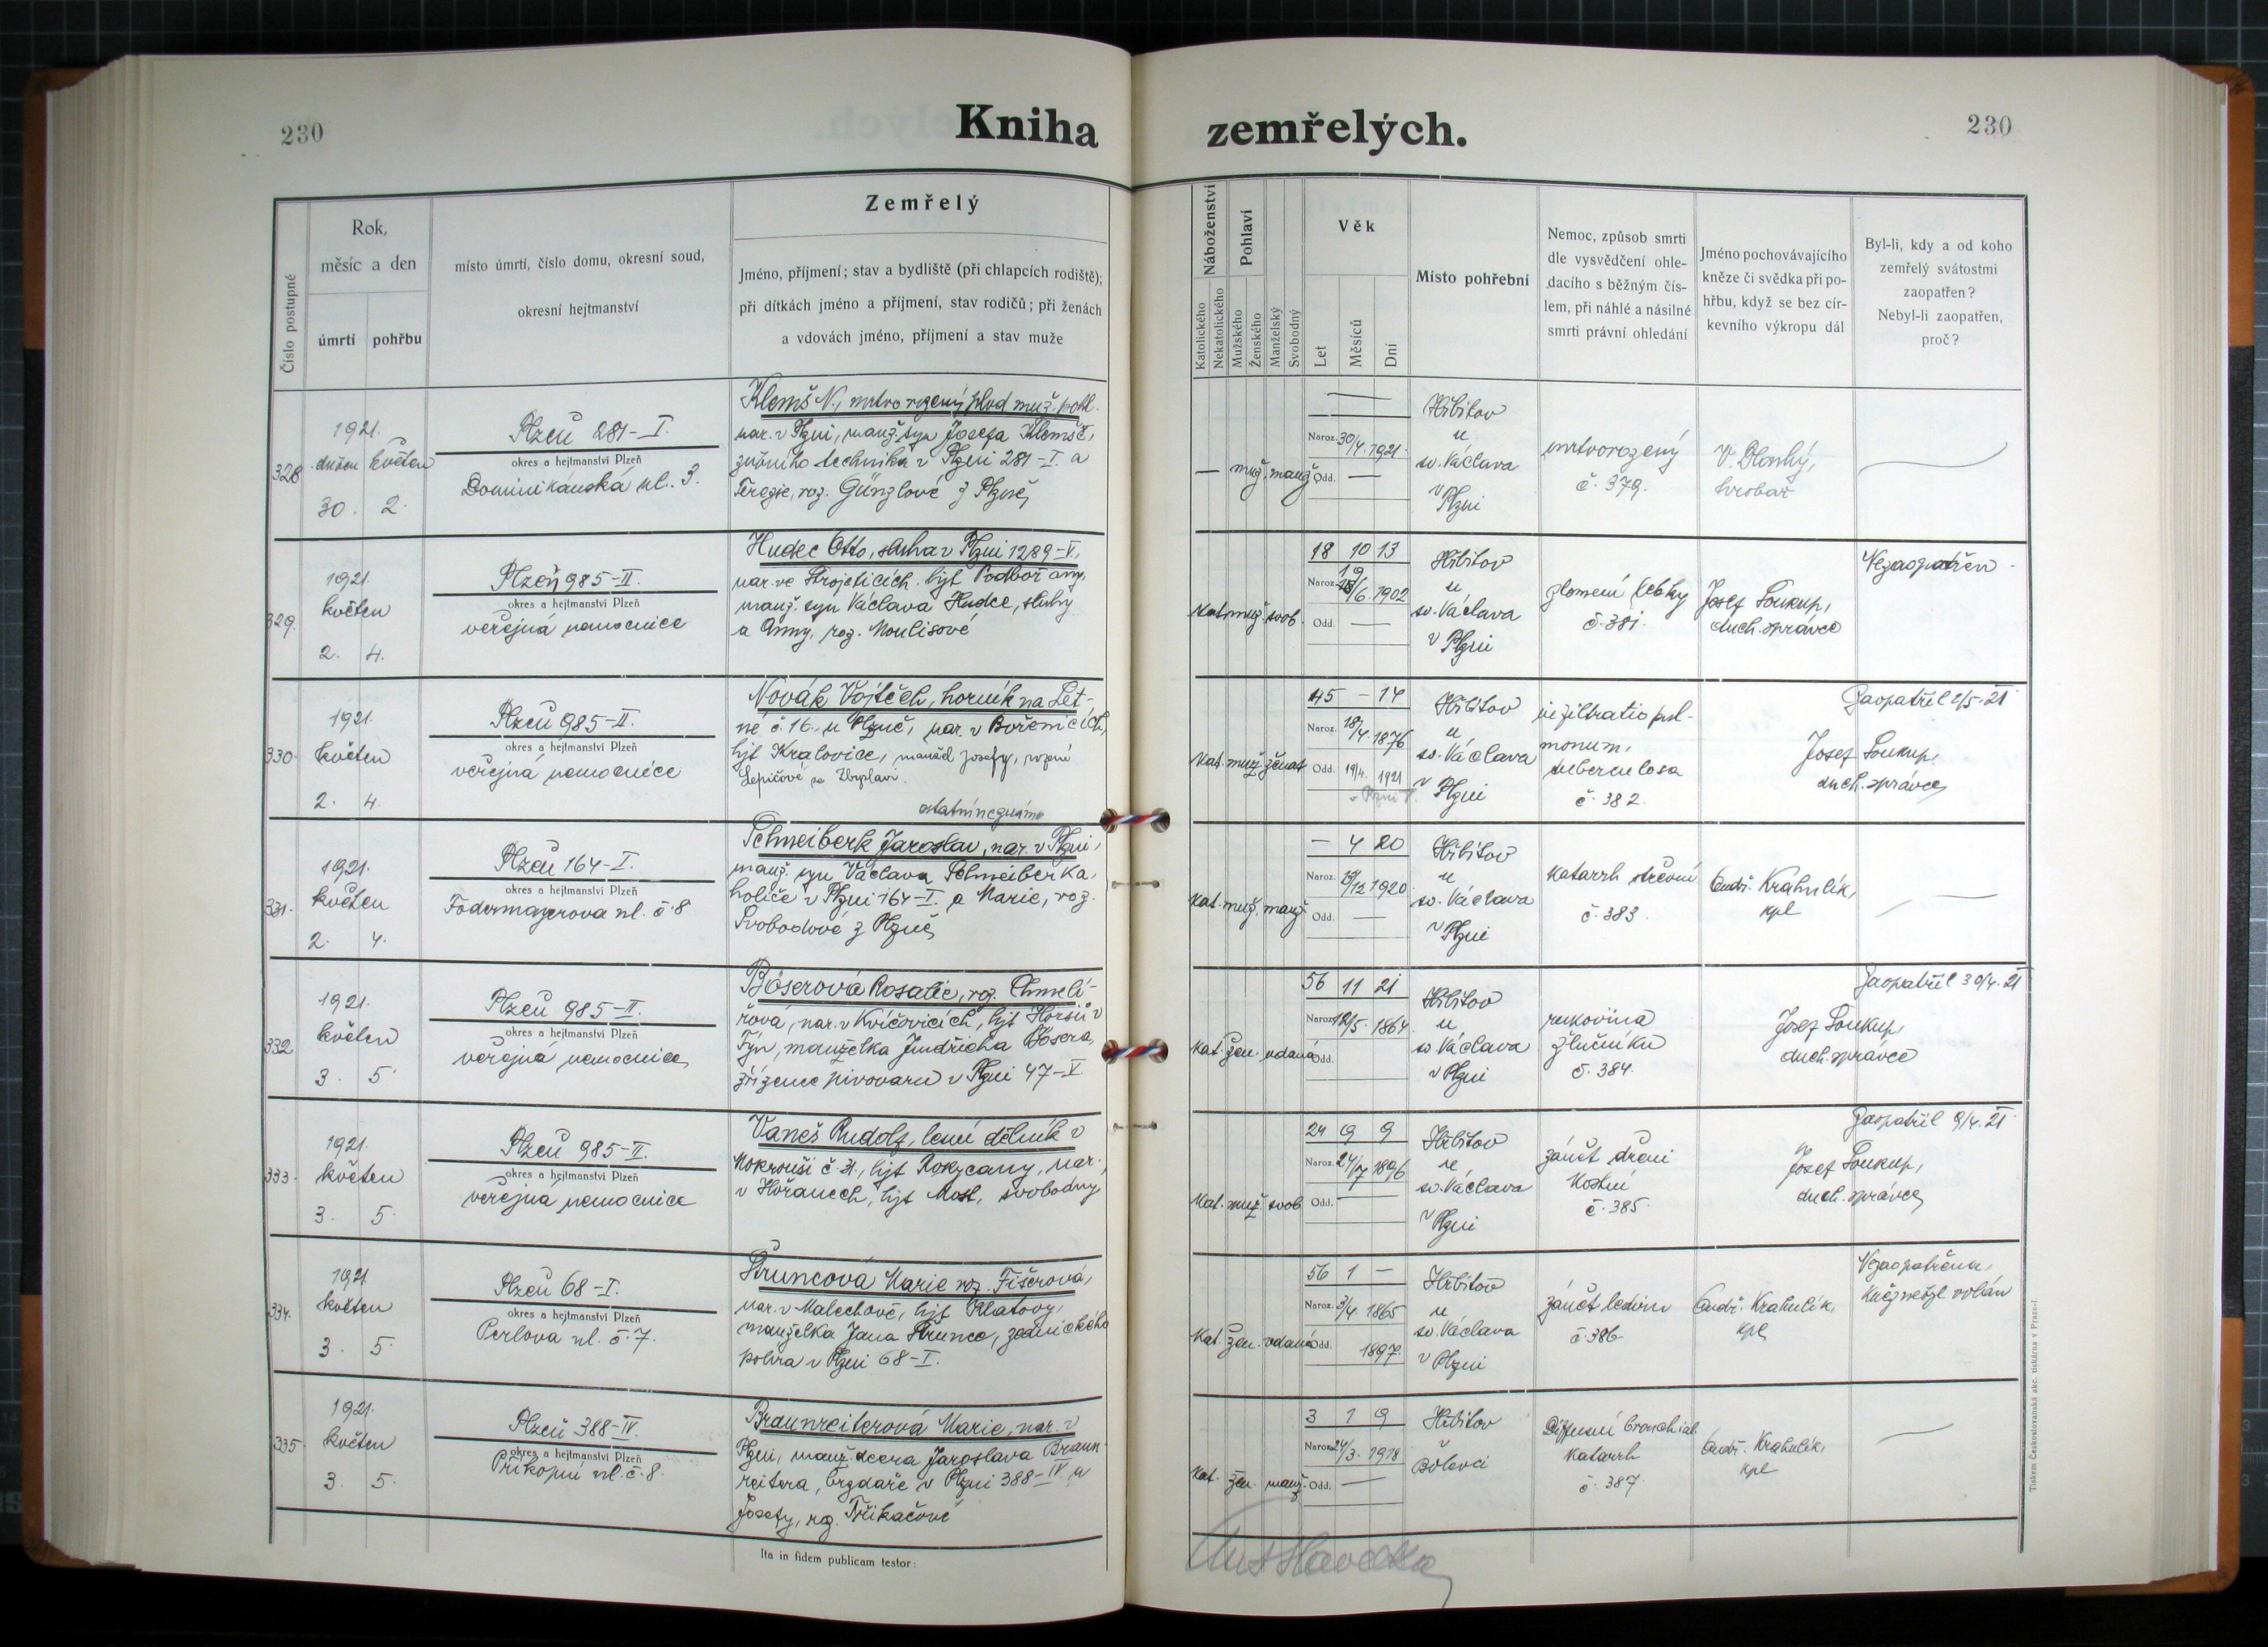 230
Kniha zemřelých.
230
Číslo postupné
Rok,
měsíc a den
úmrtí pohřbu
místo úmrtí, číslo domu, okresní soud,
okresní hejtmanství
Zemřelý
Jméno, příjmení; stav a bydliště (při chlapcích rodiště);
při dítkách jméno a příjmení, stav rodičů; při ženách
a vdovách jméno, příjmení a stav muže
Náboženství
Katolického
Nekatolického
Pohlaví
Mužského
Ženského
Manželský
Svobodný
Věk
Let
Měsíců
Dní
Místo pohřební
Nemoc, způsob smrti
dle vysvědčení ohle-
dacího s běžným čís-
lem, při náhlé a násilné
smrti právní ohledání
Jméno pochovávajícího
kněze či svědka při po-
hřbu, když se bez cír-
kevního výkropu dál
Byl-li, kdy a od koho
zemřelý svátostmi
zaopatřen?
Nebyl-li zaopatřen,
proč?
328
1921.
duben květen
30. 2.
Plzeň 281-I.
okres a hejtmanství Plzeň
Dominikánská ul. 3.
Klemš N., mrtvorozený plod muž. pohl.
nar. v Plzni, manž. syn Josefa Klemše,
technika v Plzni 281-I. a
Terezie, roz. Günzlové z Plzně
— muž. manž.
Naroz. 30/4. 1921.
Odd. —
Hřbitov
u
sv. Václava
v
Plzni
mrtvorozený
č. 379.
V. Dlouhý,
hrobař
329.
1921.
květen
2. 4.
Plzeň 985-II.
okres a hejtmanství Plzeň
veřejná nemocnice
Hudec Otto, sluha v Plzni 1289-V.,
nar. ve Strojeticích, hjt Podbořany,
manž. syn Václava Hudce, sluhy
a Anny, roz. Moulisové
kat. muž. svob.
18 10 13
Naroz. 19/6. 1902
Odd. —
Hřbitov
u
sv. Václava
v Plzni
zlomení lebky
č. 381.
Josef Soukup,
duch. správce
Nezaopatřen.
330.
1921.
květen
2. 4.
Plzeň 985-II.
okres a hejtmanství Plzeň
veřejná nemocnice
Novák Vojtěch, horník na Let-
né č. 16., u Plzně, nar. v Bořenicích,
hjt Kralovice, manžel Josefy, rozené
Lepičové ze Zbyslavi.
ostatní neznámo
kat. muž. ženat
45 — 14
Naroz. 18/4. 1876
Odd. 19/4. 1921
v Plzni
Hřbitov
u
sv. Václava
v Plzni
infiltratio pul-
monum,
tuberculosa
č. 382.
Zaopatřil 2/5-21
Josef Soukup,
duch. správce
331.
1921.
květen
2. 4.
Plzeň 164-I.
okres a hejtmanství Plzeň
Fodermayerova ul. č. 8
Schneiberk Jaroslav, nar. v Plzni,
manž. syn Václava Schneiberka,
holiče v Plzni 164-I. a Marie, roz.
Svobodové z Plzně
kat. muž. manž.
— 4 20
Naroz. /12 1920.
Odd. —
Hřbitov
u
sv. Václava
v Plzni
katarrh střevní
č. 383.
Ondř. Krahulík,
kpl
332
1921.
květen
3. 5.
Plzeň 985-II.
okres a hejtmanství Plzeň
veřejná nemocnice
Böserová Rosalie, roz. Chmelí-
řová, nar. v Kvíčovicích, hjt Horšův
Týn, manželka Jindřicha Bösera,
zřízence pivovaru v Plzni 47-V.
kat. žen. vdaná
56 11 21
Naroz. 12/5. 1864.
Odd.
Hřbitov
u
sv. Václava
v Plzni
rakovina
žlučníku
č. 384.
Zaopatřil 30/4. 21
Josef Soukup,
duch. správce
333.
1921.
květen
3. 5.
Plzeň 985-II.
okres a hejtmanství Plzeň
veřejná nemocnice
Vaneš Rudolf, lesní dělník v
Mokrouši č. 31., hjt Rokycany, nar.
v Hořanech, hjt Most, svobodný
kat. muž. svob
24 9 9
Naroz. 24/7 1896
Odd. —
Hřbitov
u
sv. Václava
v Plzni
zánět dřeni
kostní
č. 385.
Zaopatřil 9/4. 21.
Josef Soukup,
duch. správce
334.
1921.
květen
3. 5.
Plzeň 68-I.
okres a hejtmanství Plzeň
Perlova ul. č. 7.
Štruncová Marie roz. Fišerová,
nar. v Malechově, hjt Klatovy,
manželka Jana Štrunce, zednického
políra v Plzni 68-I.
kat. žen. vdaná
56 1 —
Naroz. 3/4. 1865
Odd. 1897.
Hřbitov
u
sv. Václava
v Plzni
zánět ledvin
č. 386.
Ondř. Krahulík,
kpl
Nezaopatřena,
kněz nebyl volán
335.
1921.
květen
3. 5.
Plzeň 388-IV.
okres a hejtmanství Plzeň
Příkopní ul. č. 8.
Braunreiterová Marie, nar. v
Plzni, manž. dcera Jaroslava Braun-
reitera, brzdaře v Plzni 388-IV. a
Josefy, roz. Třikačové
kat. žen. manž.
3 1 9
Naroz. 24/3. 1918
Odd. —
Hřbitov
v
Bolevci
Diffusní bronchial.
katarrh
č. 387.
Ondř. Krahulík,
kpl
Ita in fidem publicam testor:
Tiskem Českoslovanská akc. tiskárna v Praze-I